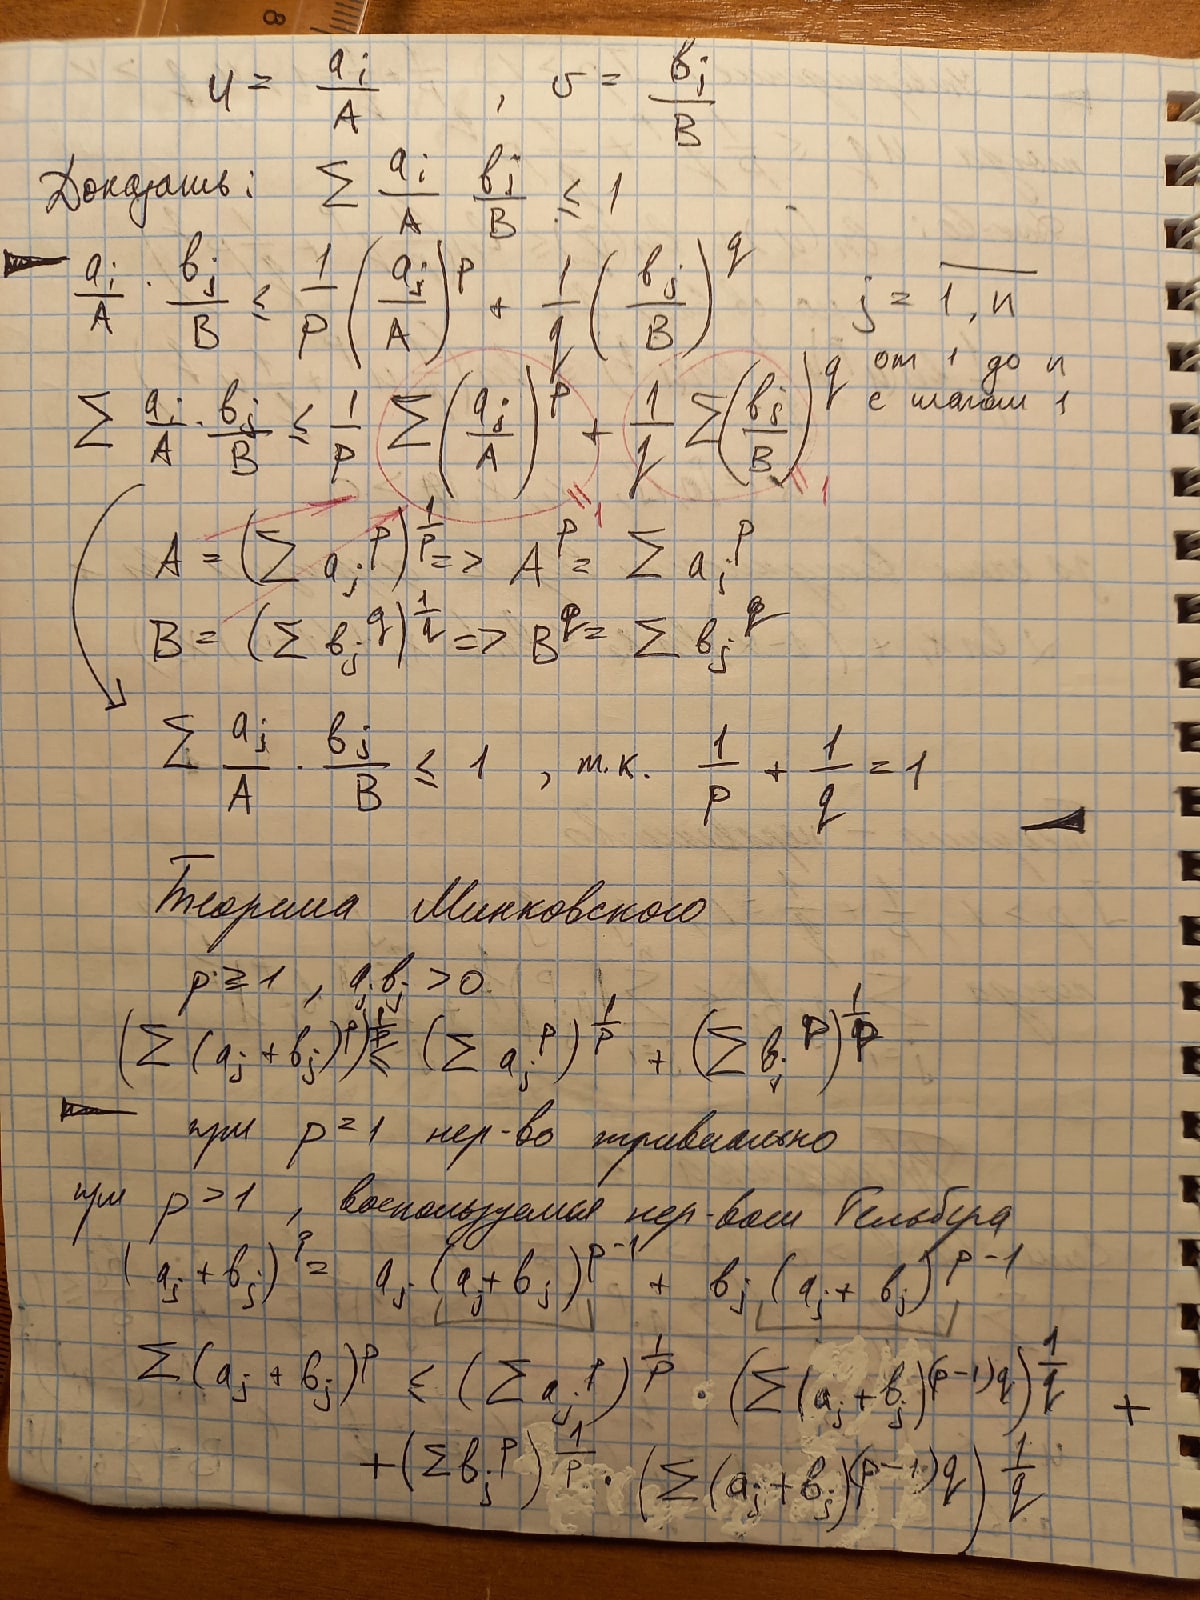 8
u = a_j/A , v = b_j/B
Доказать: ∑ a_j/A b_j/B ≤ 1
a_j/A · b_j/B ≤ 1/p (a_j/A)^p + 1/q (b_j/B)^q j = 1, n
от 1 до n
с шагом 1
∑ a_j/A · b_j/B ≤ 1/p ∑(a_j/A)^p + 1/q ∑(b_j/B)^q
= 1 = 1
A = (∑ a_j^p)^(1/p) => A^p = ∑ a_j^p
B = (∑ b_j^q)^(1/q) => B^q = ∑ b_j^q
∑ a_j/A · b_j/B ≤ 1 , т.к. 1/p + 1/q = 1
Теорема Минковского
p ≥ 1 , a_j b_j > 0
(∑ (a_j + b_j)^p)^(1/p) ≤ (∑ a_j^p)^(1/p) + (∑ b_j^p)^(1/p)
при p = 1 нер-во тривиально
при p > 1 , воспользуемся нер-вом Гельбера
(a_j + b_j)^p = a_j (a_j + b_j)^(p-1) + b_j (a_j + b_j)^(p-1)
∑ (a_j + b_j)^p ≤ (∑ a_j^p)^(1/p) · (∑ (a_j + b_j)^(p-1)q)^(1/q) +
+ (∑ b_j^p)^(1/p) · (∑ (a_j + b_j)^(p-1)q)^(1/q)